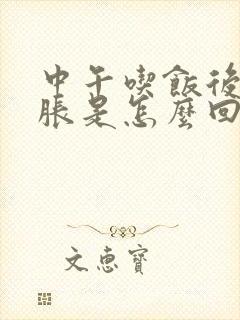 中午喫飯後
脹是怎麼回
文惠寶